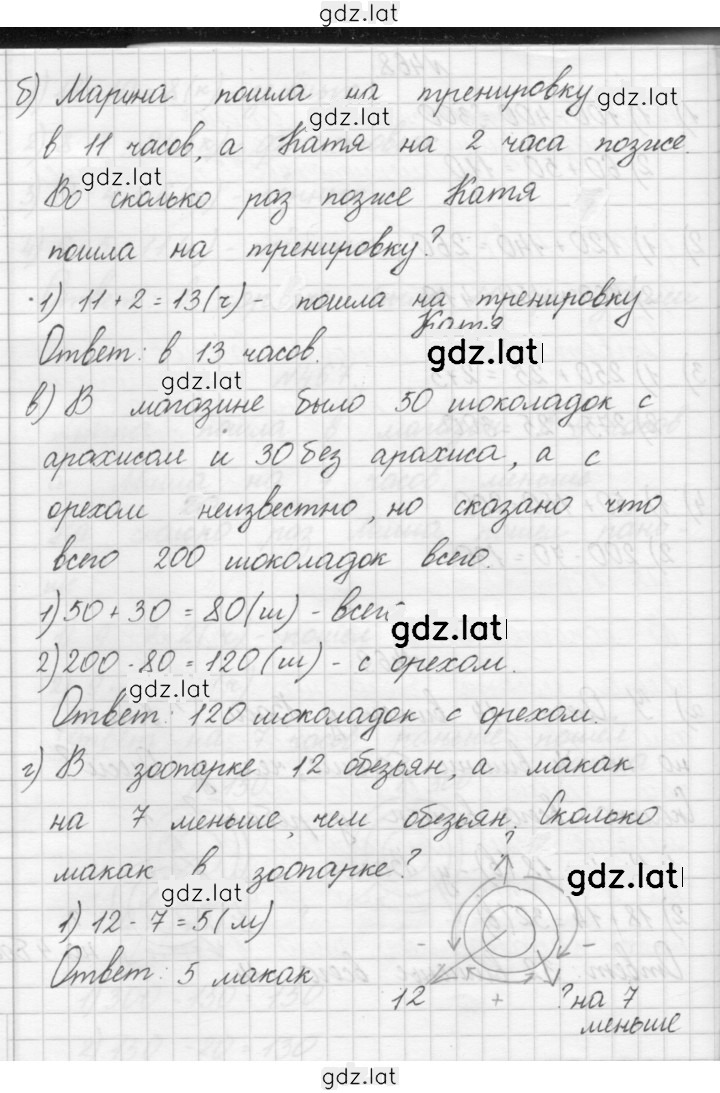 gdz.lat
б) Марина пошла на тренировку gdz.lat
gdz.lat
в 11 часов, а Катя на 2 часа позже.
gdz.lat
Во сколько раз позже Катя
пошла на тренировку?
1) 11 + 2 = 13 (ч) - пошла на тренировку
Катя
Ответ: в 13 часов. gdz.lat
gdz.lat
в) В магазине было 50 шоколадок с
арахисом и 30 без арахиса, а с
орехом неизвестно, но сказано что
всего 200 шоколадок всего.
1) 50 + 30 = 80 (ш) - всег
gdz.lat
2) 200 - 80 = 120 (ш) - с орехом.
gdz.lat
Ответ: 120 шоколадок с орехом.
г) В зоопарке 12 обезьян, а макак
на 7 меньше, чем обезьян. Сколько
макак в зоопарке?
?
gdz.lat
gdz.lat
1) 12 - 7 = 5 (м)
- -
Ответ: 5 макак
12 + ? на 7
меньше
gdz.lat